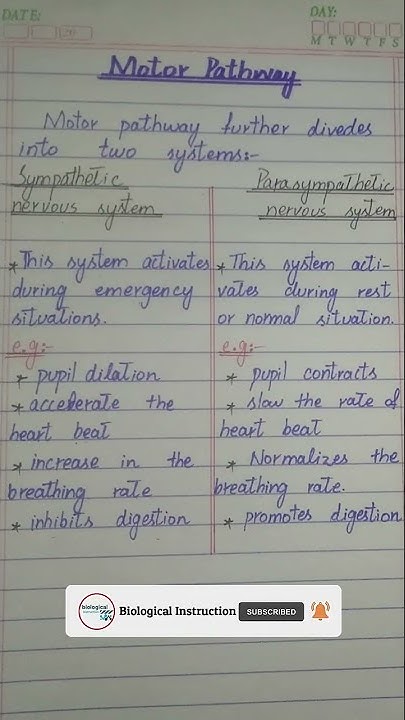 DATE:
DAY:
M T W T F S
Motor Pathway
Motor pathway further divedes
into two systems:-
Sympathetic
nervous system
* This system activates
during emergency
situations.
e.g:-
* pupil dilation
* accelerate the
heart beat
* increase in the
breathing rate
* inhibits digestion
Parasympathetic
nervous system
* This system acti-
vates during rest
or normal situation.
e.g:-
* pupil contracts
* slow the rate of
heart beat
* Normalizes the
breathing rate.
* promotes digestion
Biological Instruction SUBSCRIBED